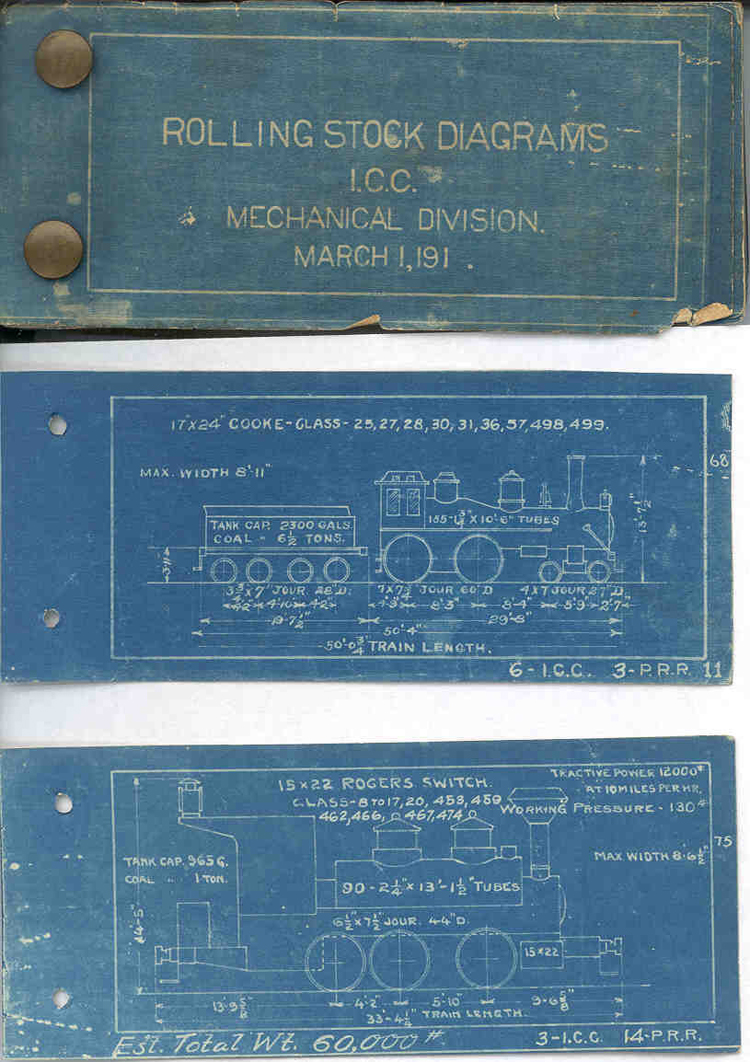 ROLLING STOCK DIAGRAMS
I.C.C.
MECHANICAL DIVISION.
MARCH 1, 191 .
17"X24" COOKE-CLASS-25,27,28,30,31,36,57,498,499.
68
MAX. WIDTH 8'-11"
TANK CAP. 2300 GALS
COAL - 6½ TONS.
10'-6" TUBES
13'-7½"
JOUR 28"D.
7X7½ JOUR 60"D
4X7 JOUR 27"D
4'-10"
8'-3"
8'-4"
5'-9"
2'-7"
19'-7½"
29'-8"
50'-4"
50'-0¾" TRAIN LENGTH.
6-I.C.C. 3-P.R.R. 11
15X22 ROGERS SWITCH.
CLASS-8 TO 17, 20, 458, 459
462,466, 467,474
TRACTIVE POWER 12000#
AT 10 MILES PER HR.
WORKING PRESSURE - 130#
75
TANK CAP. 965 G.
COAL " 1 TON.
MAX WIDTH 8'-6½"
90-2¼"X13'-1½" TUBES
14'-5"
6½"X7½" JOUR. 44"D.
15X22
13'-9⅝"
4'-2"
5'-10"
9'-6⅝"
33'-4¼" TRAIN LENGTH.
Est. Total Wt. 60,000 #.
3-I.C.C. 14-P.R.R.